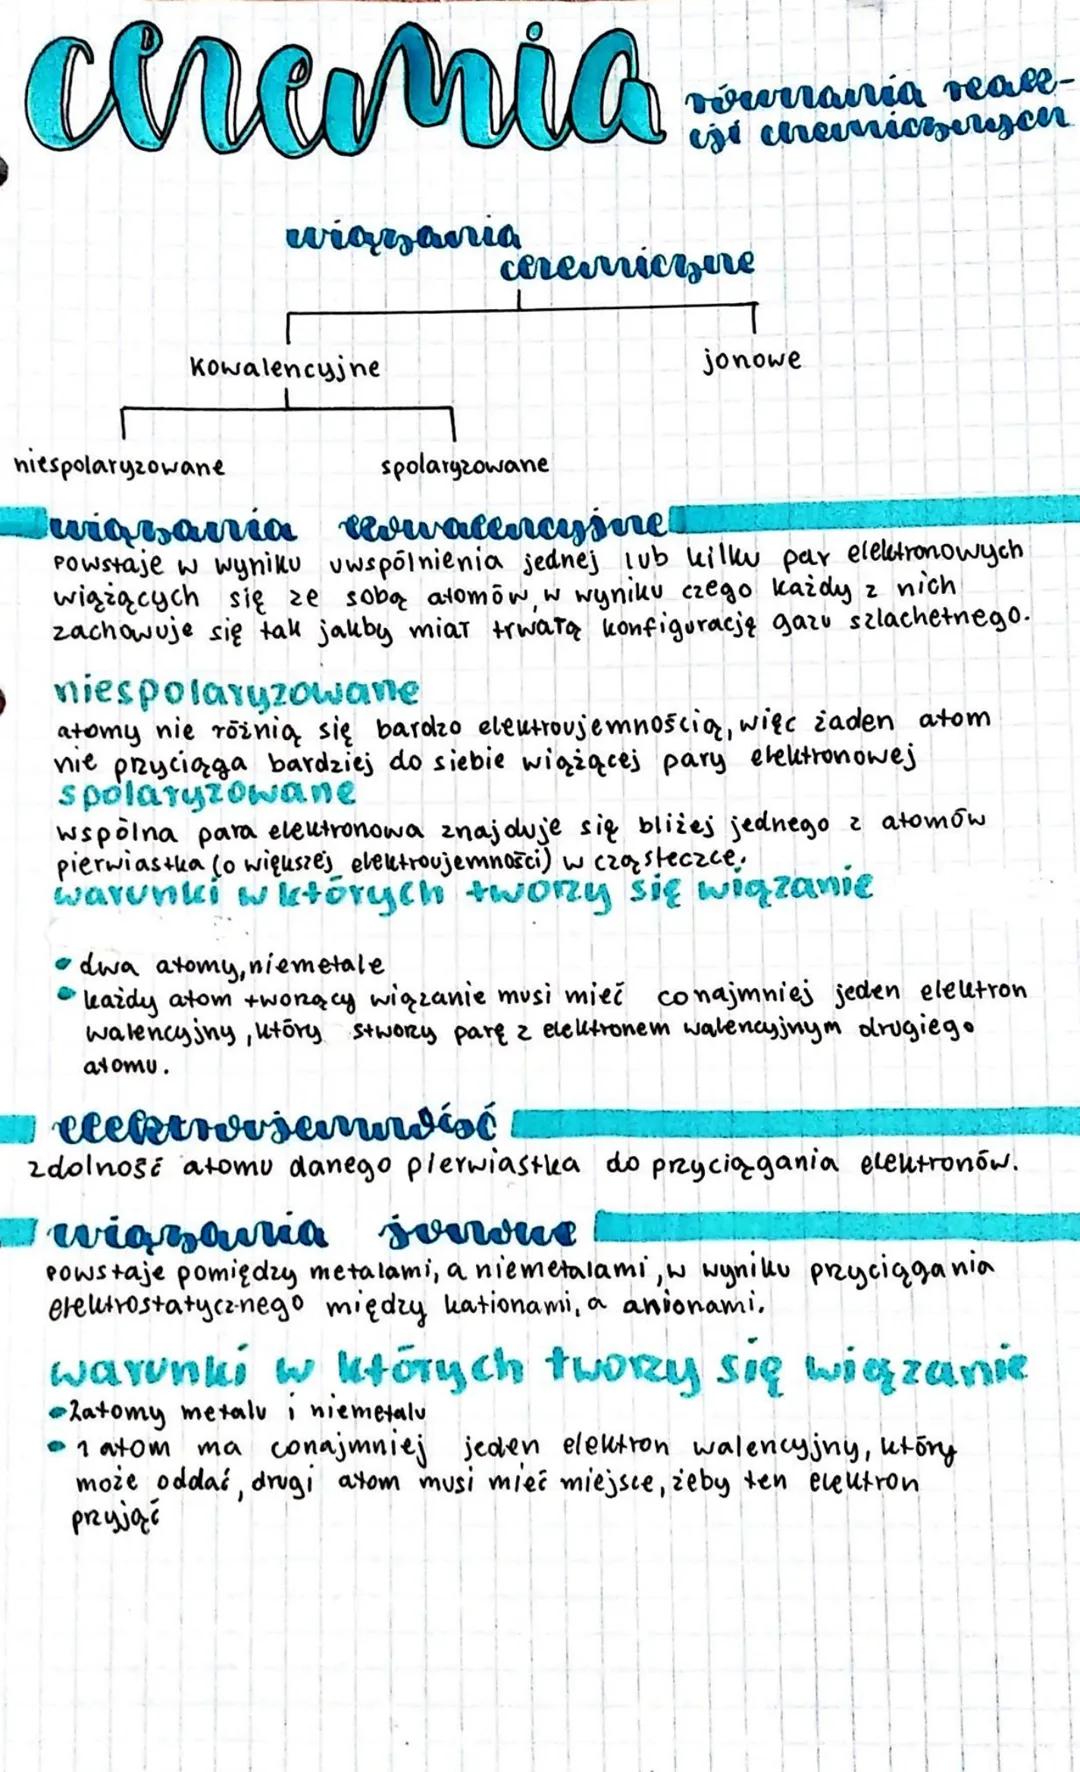 chemia
równania reak-
cji chemicznych
wiązania
chemiczne
kowalencyjne
jonowe
niespolaryzowane
spolaryzowane
wiązania kowalencyjne
powstaje w wyniku uwspólnienia jednej lub kilku par elektronowych
wiążących się ze sobą atomów, w wyniku czego każdy z nich
zachowuje się tak jakby miał trwałą konfigurację gazu szlachetnego.
niespolaryzowane
atomy nie różnią się bardzo elektroujemnością, więc żaden atom
nie przyciąga bardziej do siebie wiążącej pary elektronowej
spolaryzowane
wspólna para elektronowa znajduje się bliżej jednego z atomów
pierwiastka (o większej elektroujemności) w cząsteczce.
warunki w których tworzy się wiązanie
• dwa atomy, niemetale
• każdy atom tworzący wiązanie musi mieć conajmniej jeden elektron
walencyjny, który stworzy parę z elektronem walencyjnym drugiego
atomu.
elektroujemność
zdolność atomu danego pierwiastka do przyciągania elektronów.
wiązania jonowe
powstaje pomiędzy metalami, a niemetalami, w wyniku przyciągania
elektrostatycznego między kationami, a anionami.
warunki w których tworzy się wiązanie
• 2 atomy metalu i niemetalu
• 1 atom ma conajmniej jeden elektron walencyjny, który
może oddać, drugi atom musi mieć miejsce, żeby ten elektron
przyjąć